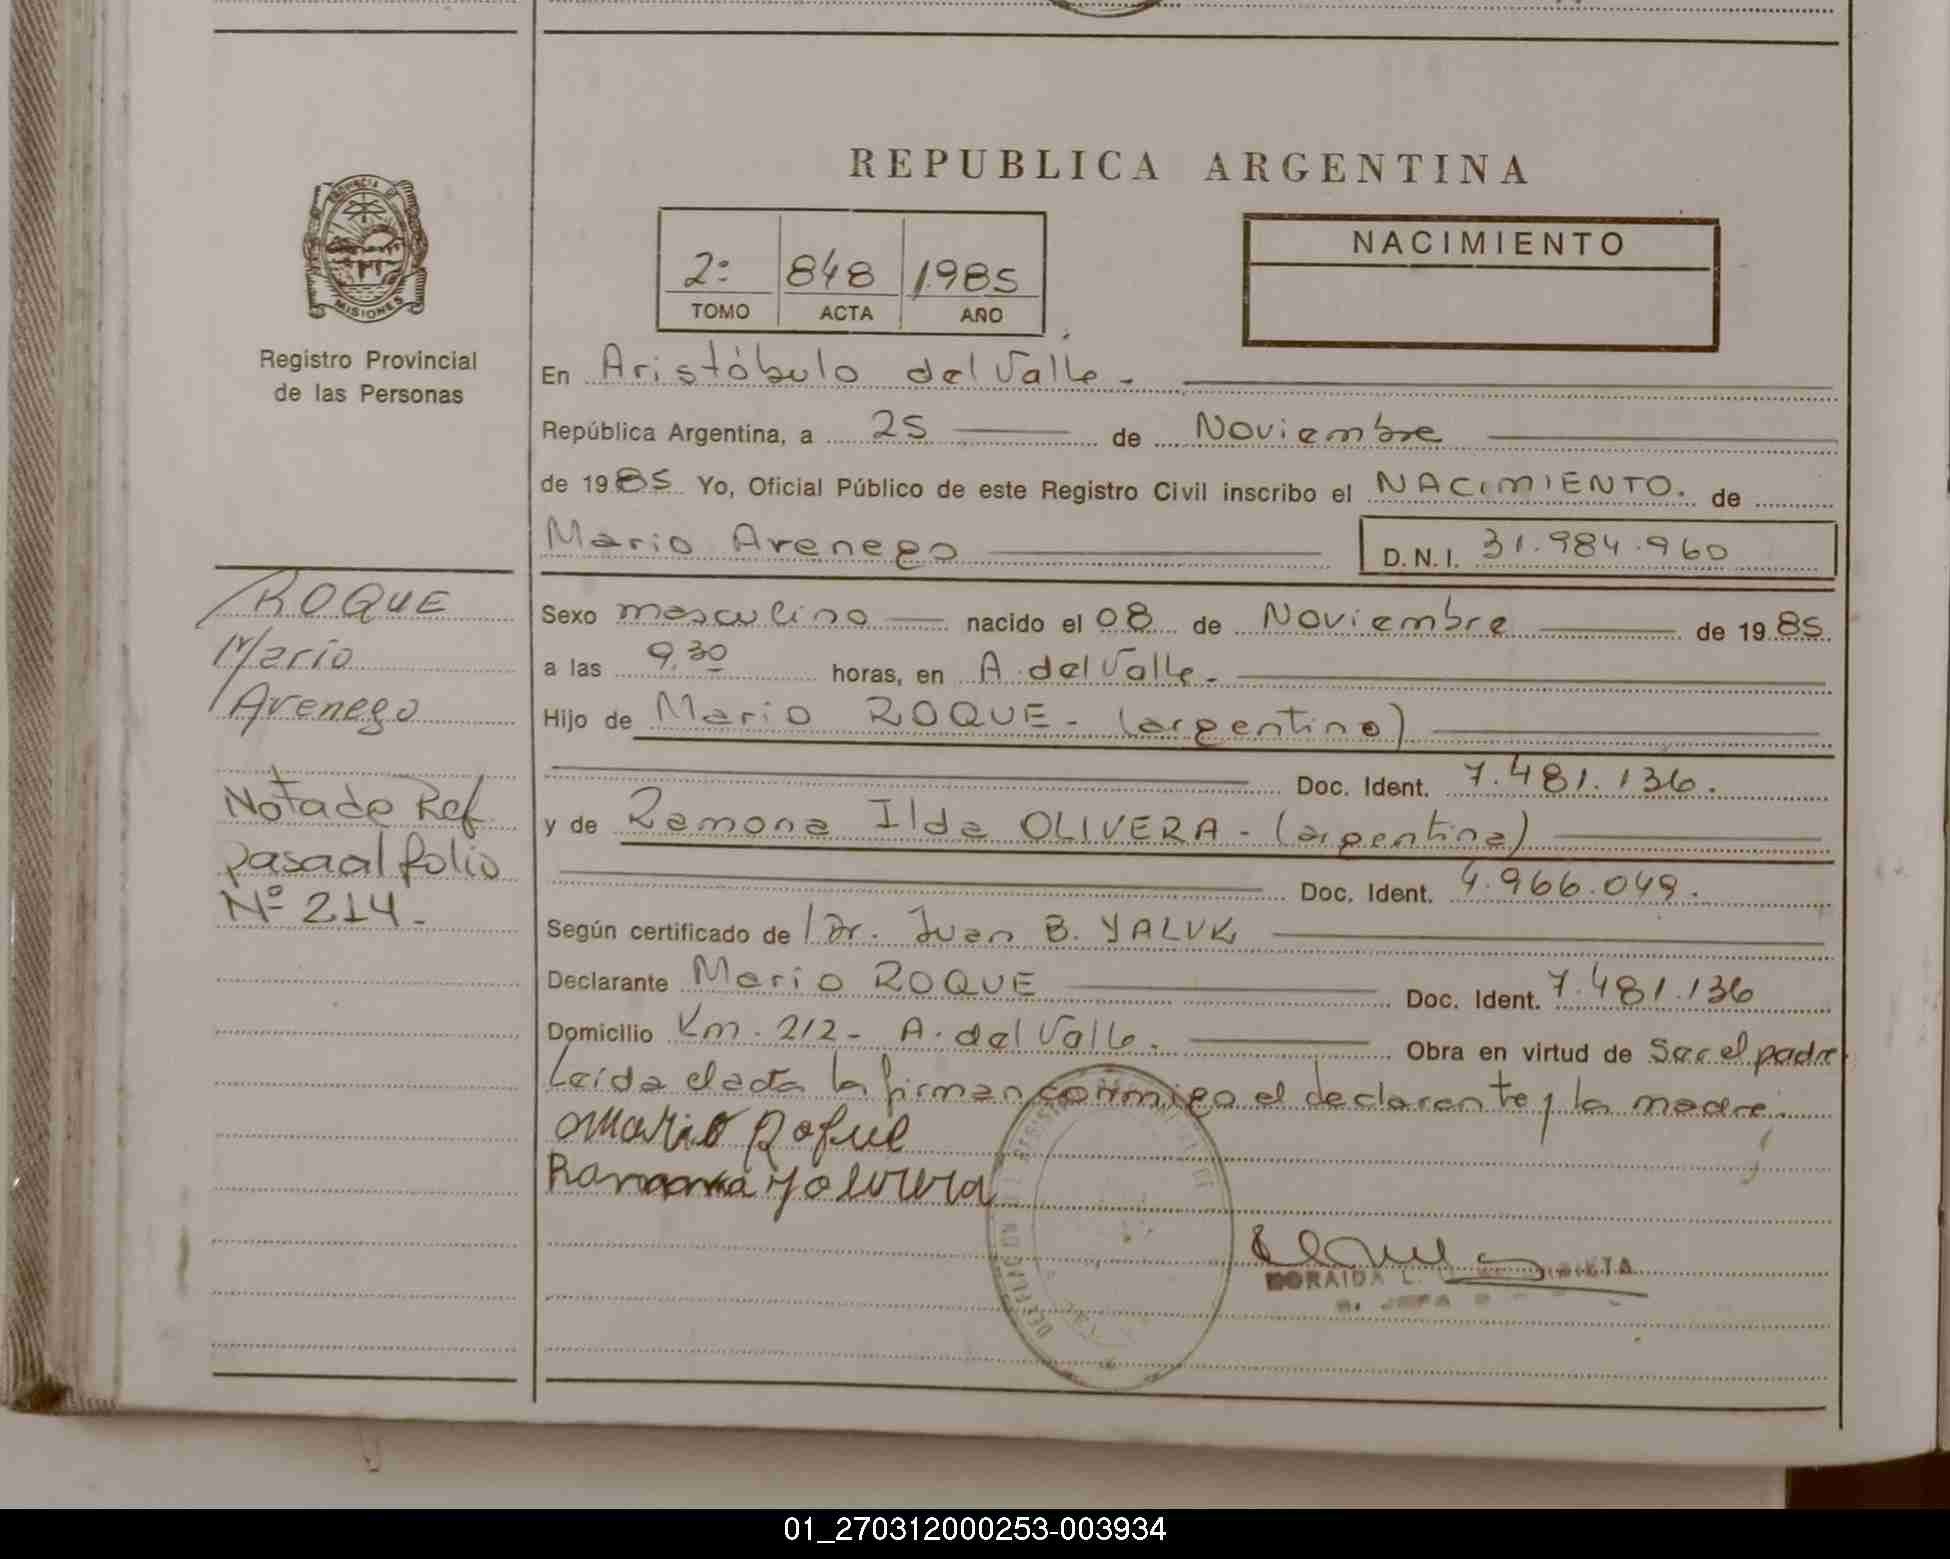 REPUBLICA ARGENTINA
PROVINCIA DE
MISIONES
Registro Provincial
de las Personas
2º 848 1985
TOMO ACTA AÑO
NACIMIENTO
En Aristóbulo del Valle.
República Argentina, a 25 de Noviembre
de 1985 Yo, Oficial Público de este Registro Civil inscribo el NACIMIENTO. de
Mario Arenego D.N.I. 31.984.960
ROQUE
Mario
Arenego
Nota de Ref
pasa al folio
Nº 214.
Sexo masculino nacido el 08 de Noviembre de 1985.
a las 9.30 horas, en A. del Valle.
Hijo de Mario ROQUE - (argentino)
Doc. Ident. 7.481.136.
y de Ramona Ilda OLIVERA - (argentina)
Doc. Ident. 4.966.049.
Según certificado de Dr. Juan B. YALUK
Declarante Mario ROQUE Doc. Ident. 7.481.136
Domicilio Km. 212 - A. del Valle. Obra en virtud de Ser el padre
Leída el acta la firman conmigo el declarante y la madre.
Mario Roque
Ramona Y olivera
01_270312000253-003934